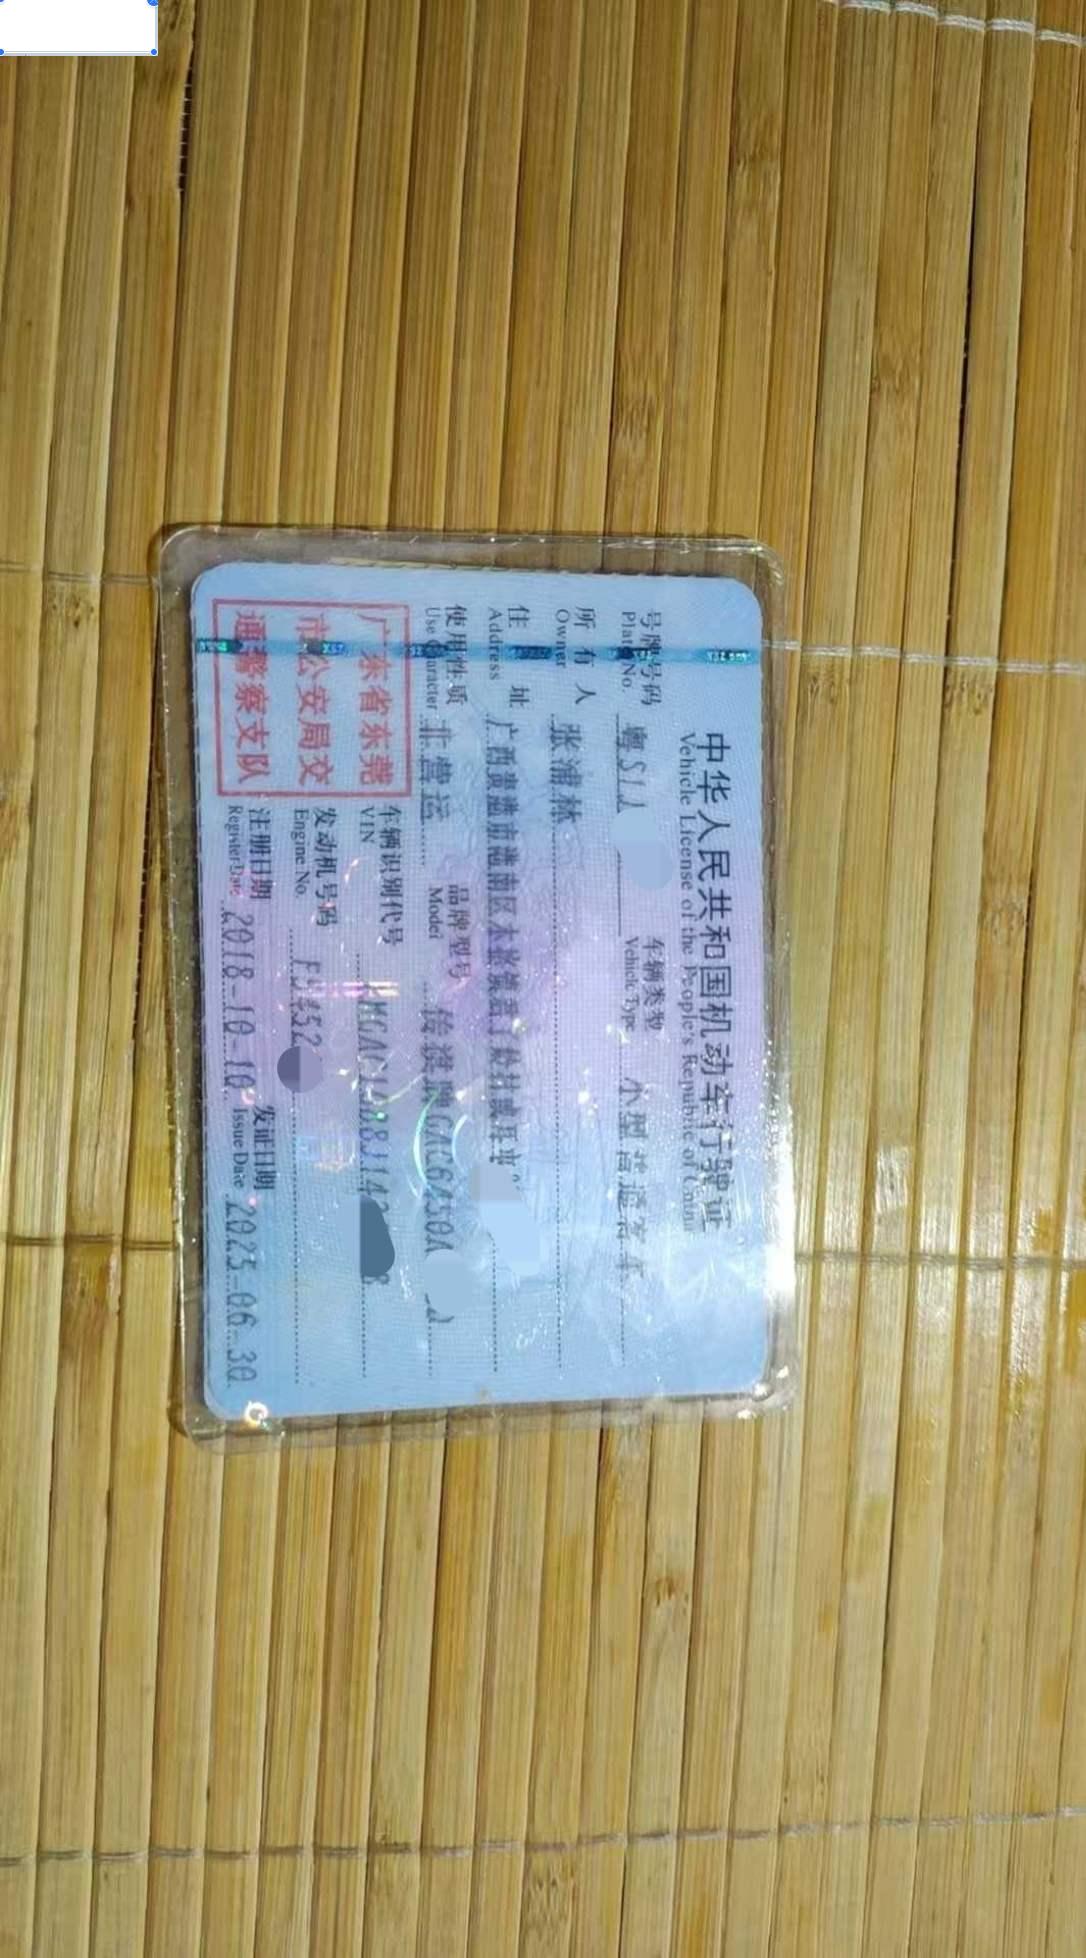 中华人民共和国机动车行驶证
Vehicle License of the People's Republic of China
号牌号码 粤S1J 车辆类型 小型普通客车
Plate No. Vehicle Type
所有人 张浦林
Owner
住址 广西贵港市港南区木格镇
Address
使用性质 非营运 品牌型号 传祺牌GAC6450A
Use Character Model
广东省东莞
市公安局交
通警察支队
车辆识别代号
VIN MGAC1
发动机号码
Engine No.
注册日期 2018-10-10 发证日期 2025-06-30
Register Date Issue Date